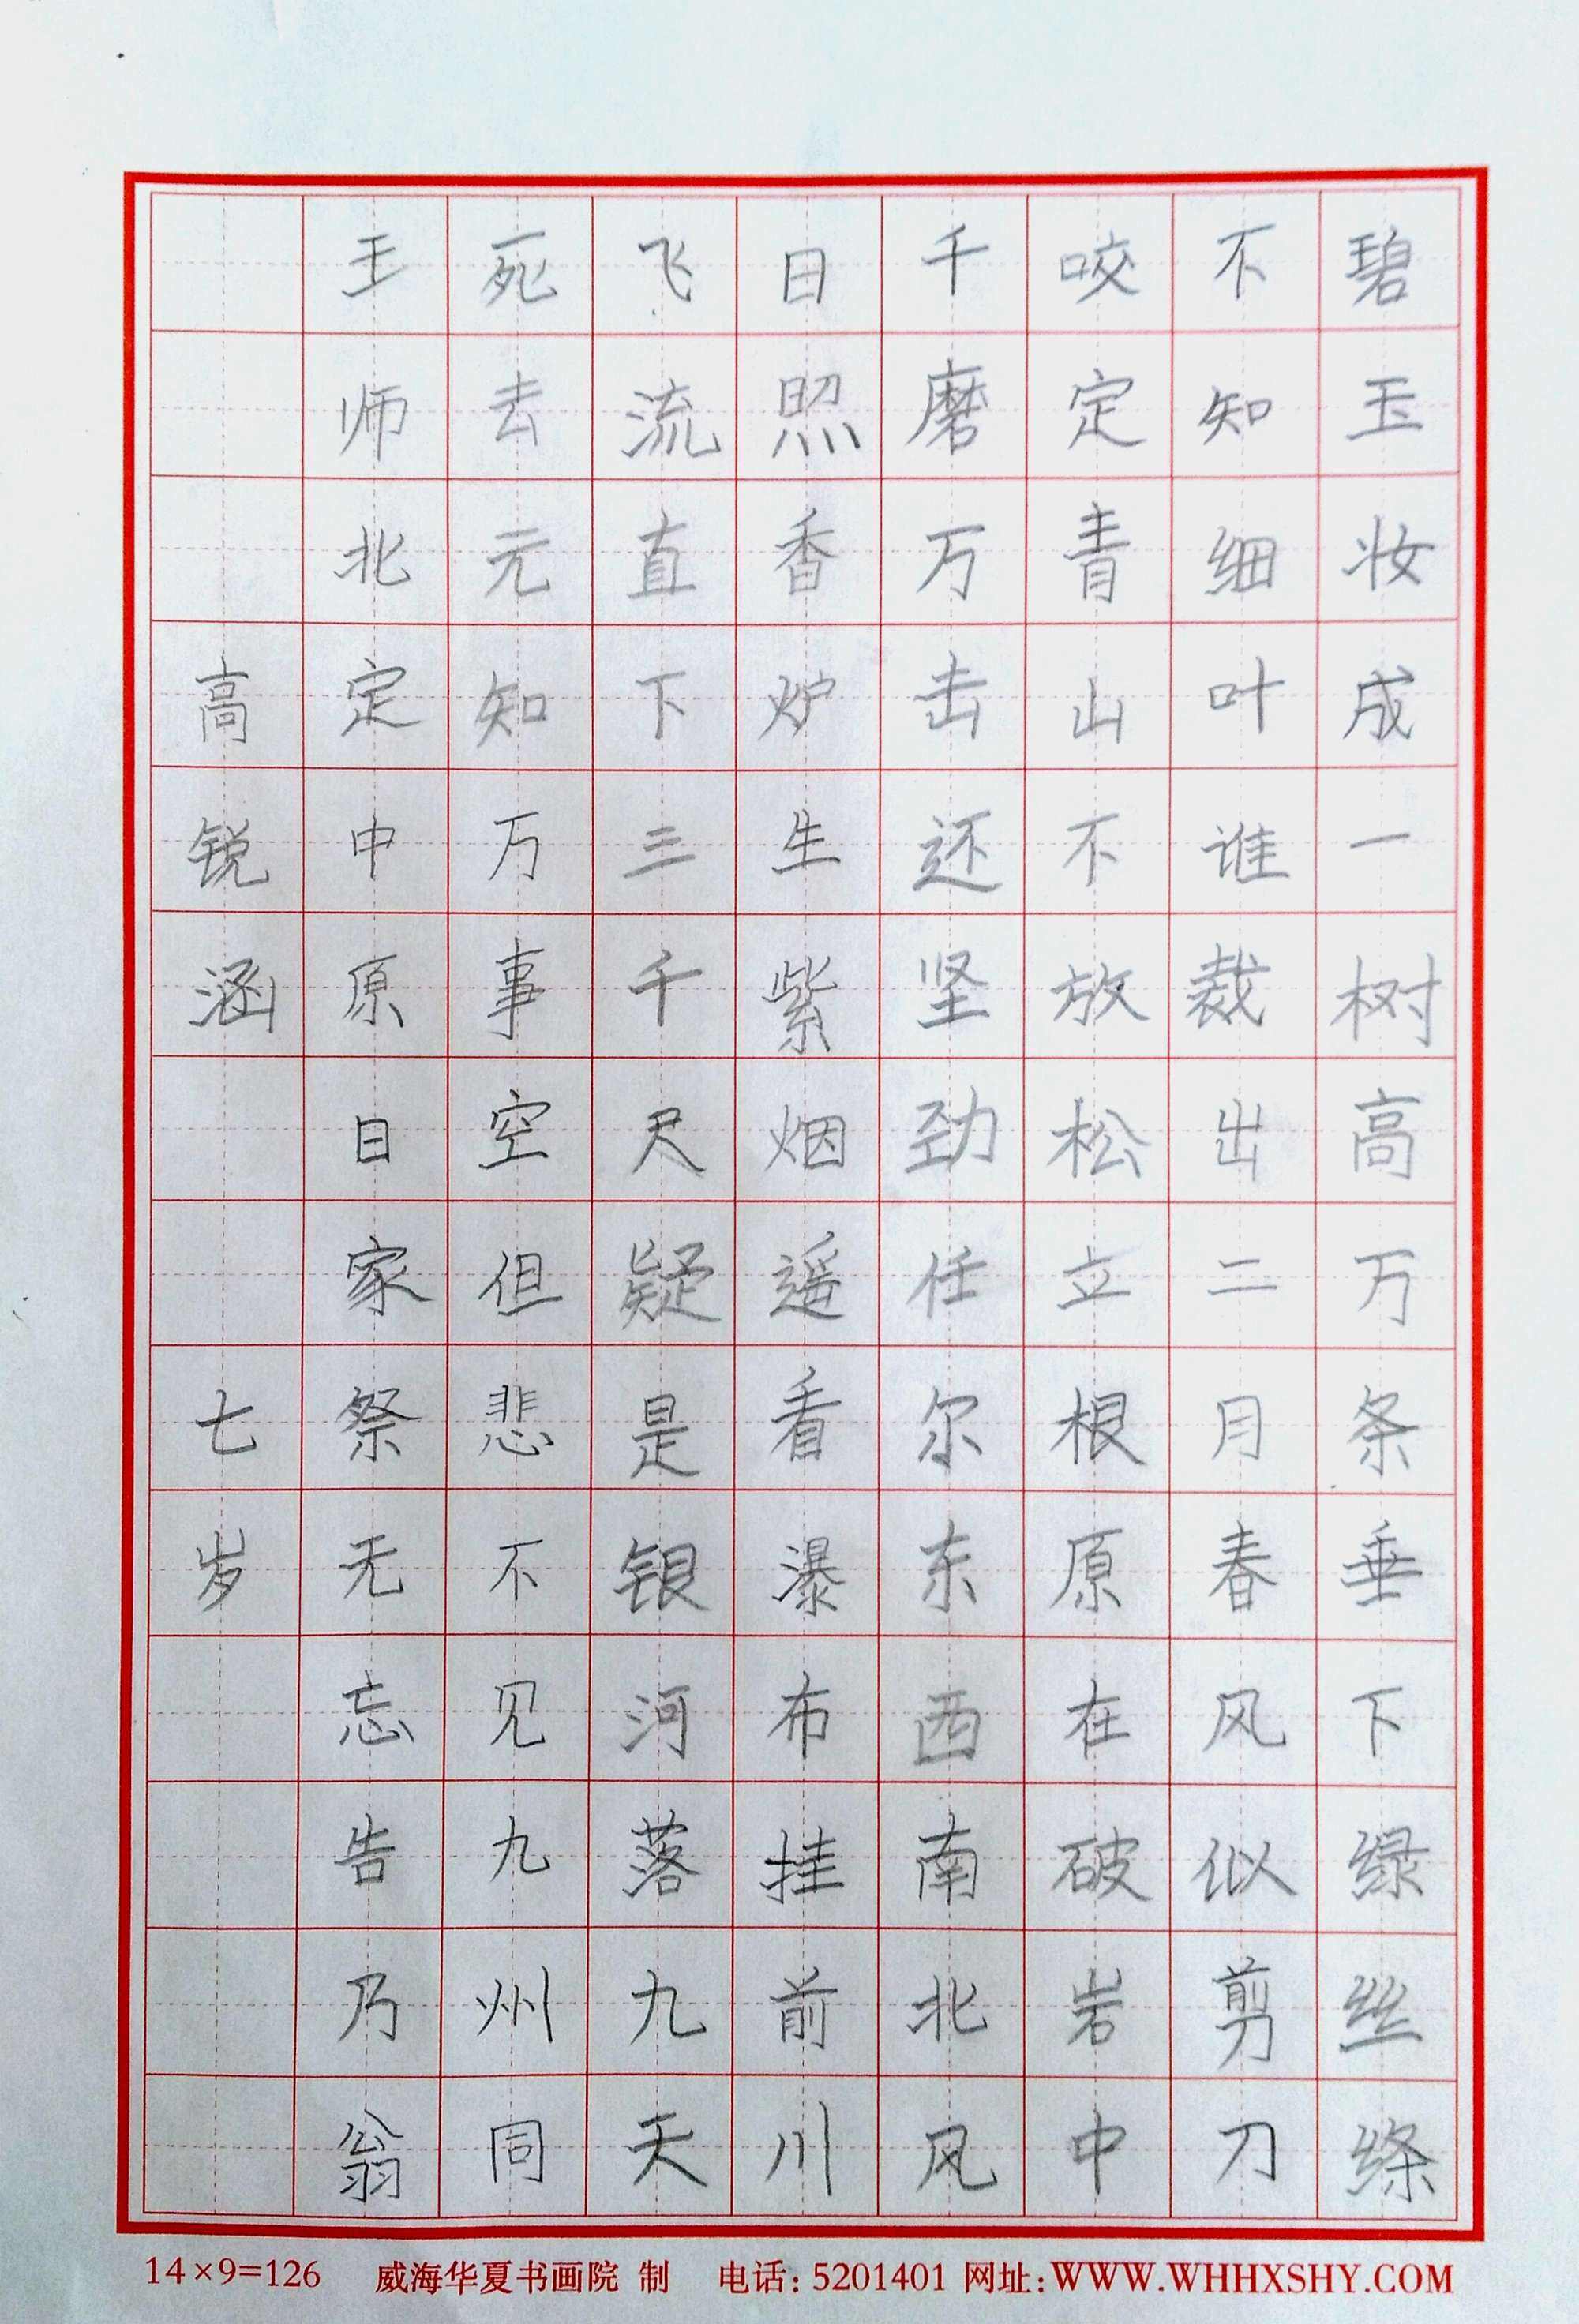 碧玉妆成一树高万条垂下绿丝绦
不知细叶谁裁出二月春风似剪刀
咬定青山不放松立根原在破岩中
千磨万击还坚劲任尔东西南北风
日照香炉生紫烟遥看瀑布挂前川
飞流直下三千尺疑是银河落九天
死去元知万事空但悲不见九州同
王师北定中原日家祭无忘告乃翁
高锐涵 七岁
14×9=126 威海华夏书画院 制 电话：5201401 网址：WWW.WHHXSHY.COM